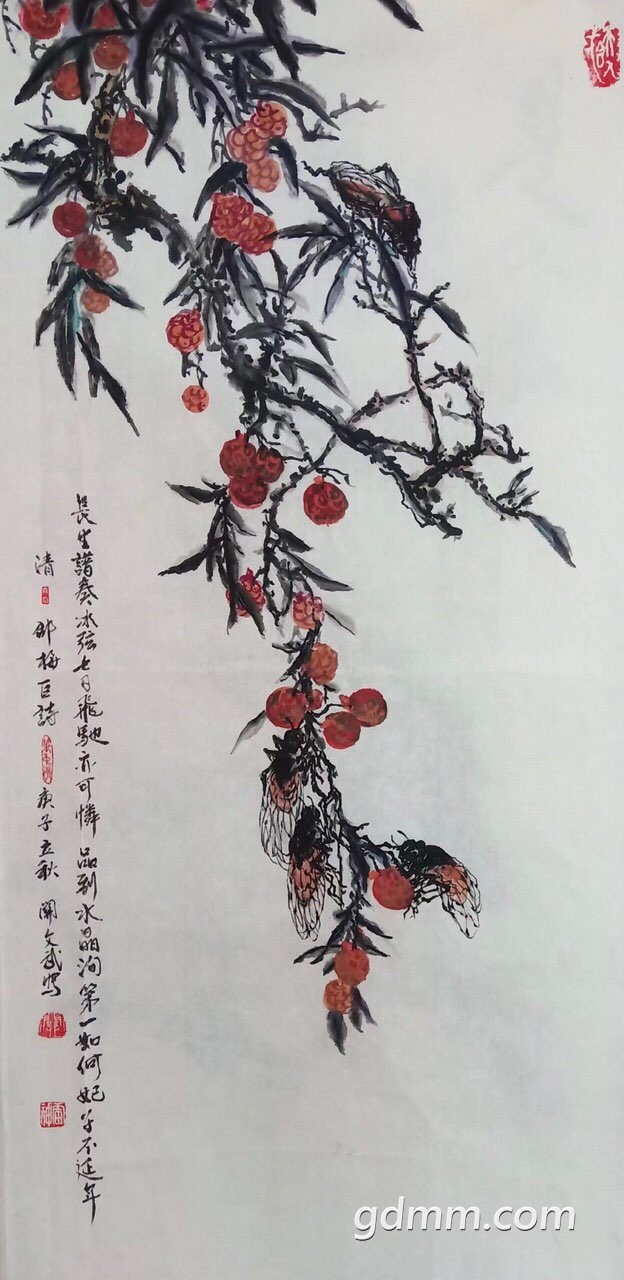 長生譜奏冰弦七月飛馳亦可憐品到水晶洵第一如何妃子不延年
清 邵梅臣詩 庚子立秋 關文武寫
gdmm.com